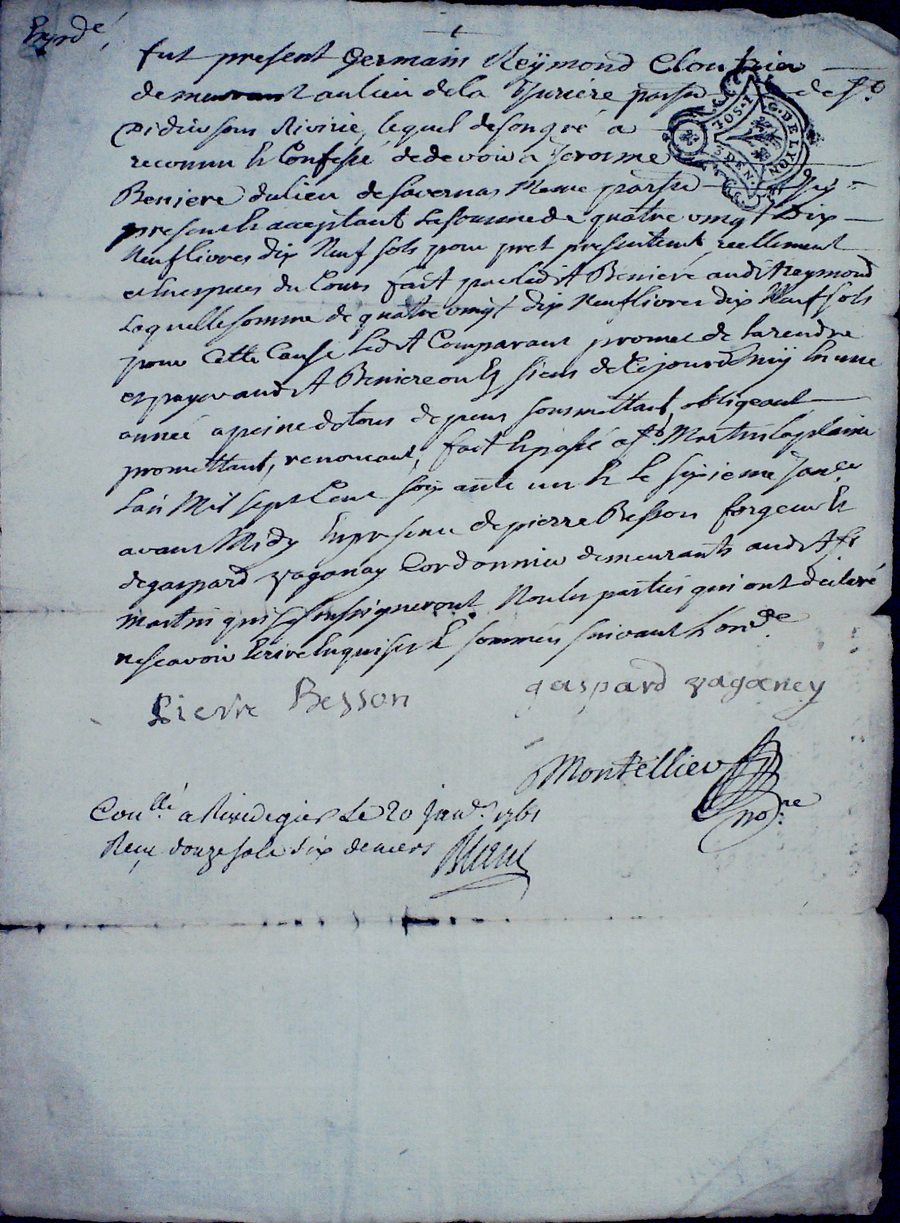 fut present Germain Reÿmond Cloutrier
demeurant au lieu de la paroisse de St
Didier sous Rivirie, lequel de son gré a
reconnu et Confessé de devoir a Jerosme
Beniere du lieu de Savernas Meme paroisse icy
present et acceptant La somme de quatre vingt Dix
Neuf livres dix Neuf sols pour pret presentement reellement
et en especes du Cours fait par ledit Beniere audit Reymond
Laquelle somme de quatre vingt dix Neuf livres dix Neuf sols
pour Cette Cause Ledit Comparant promet de La rendre
et payer audit Beniere ou Es siens de Ce jourdhuÿ En une
année a peine de tous depens soumettant, obligeant
promettant, renoncant, fait Et passé a St Martin La plaine
L'an Mil sept Cent soixante un Et Le sixieme Janer
avant Midy En presence de pierre Besson forgeur Et
de gaspard Zaganay Cordonnier demeurants audit St
Martin qui signeront Non les parties qui ont declaré
ne scavoir Ecrire Enquises Et sommées suivant L'ordce
pierre Besson gaspard zaganey
Montellier
nore
Conllé a Rivedegier Le 20 janer 1761
Reçu douze sols six deniers
G. DE LYON
1 SOL. 3 DEN.